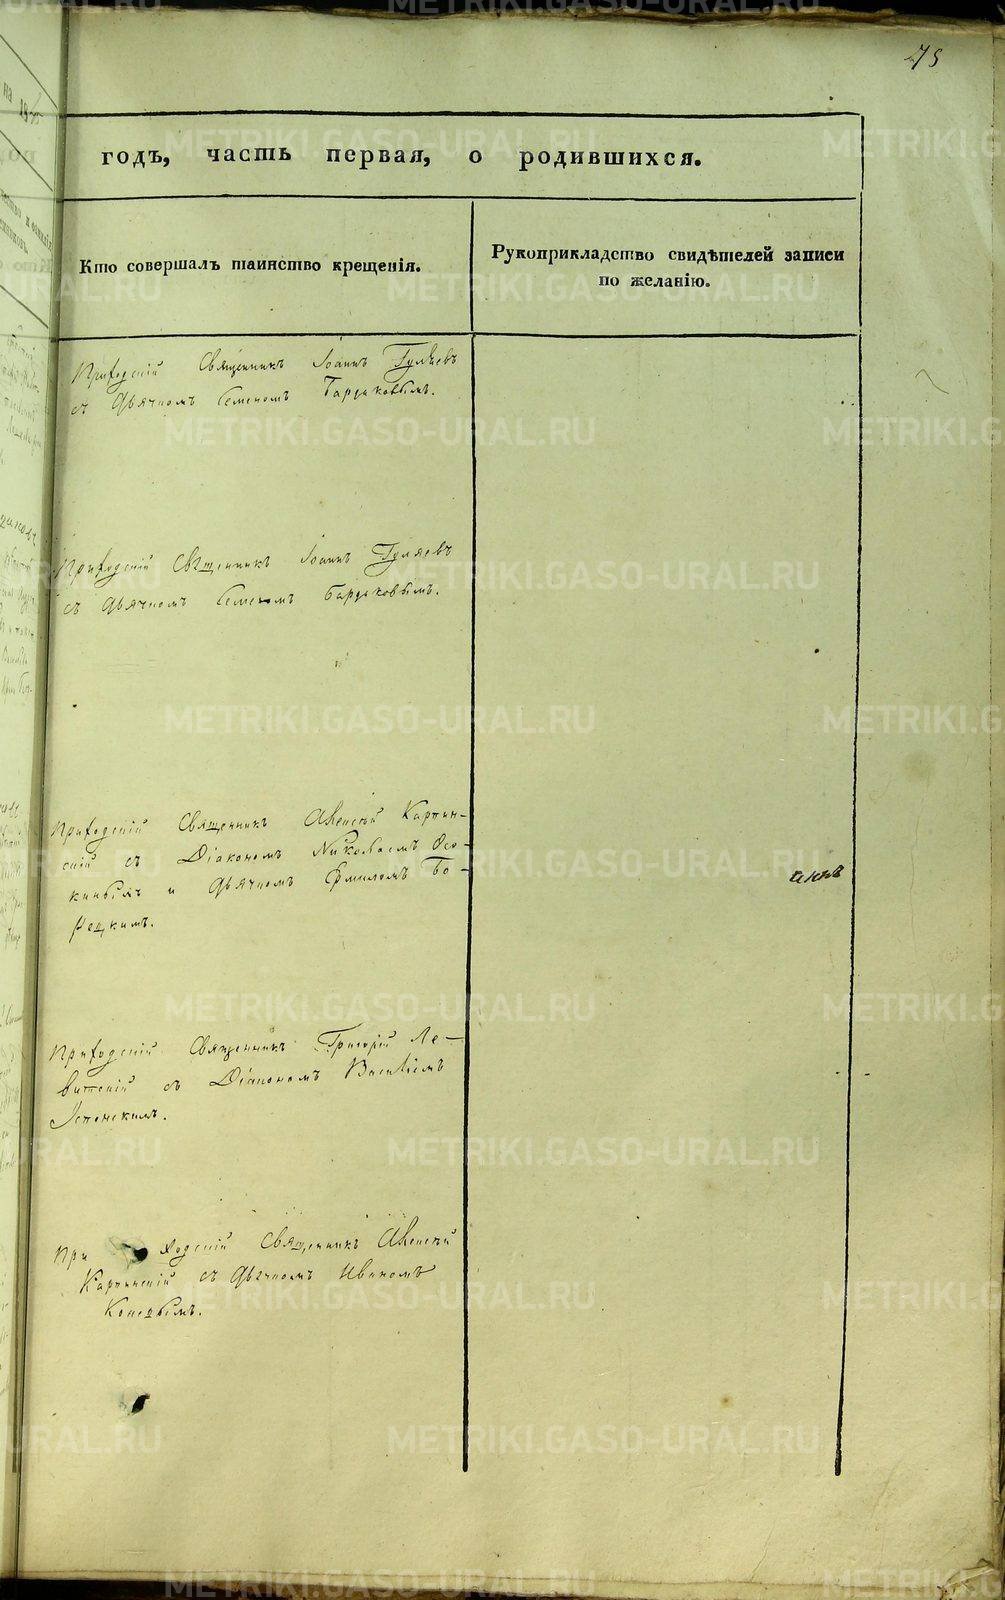 75
годъ, часть первая, о родившихся.
Кто совершалъ таинство крещенія.
Рукоприкладство свидѣтелей записи
по желанію.
Приходскій Священникъ Іоаннъ Гуляевъ
съ Дьячкомъ Семеномъ Бардаковымъ.
Приходскій Священникъ Іоаннъ Гуляевъ
съ Дьячкомъ Семеномъ Бардаковымъ.
Приходскій Священникъ Алексѣй Карпин-
скій съ Діакономъ Николаемъ
и Дьячкомъ
Приходскій Священникъ Григорій Ле-
витскій съ Діакономъ Василіемъ
При ходскій Священникъ Алексѣй
Карпинскій съ Дьячкомъ Иваномъ
METRIKI.GASO-URAL.RU